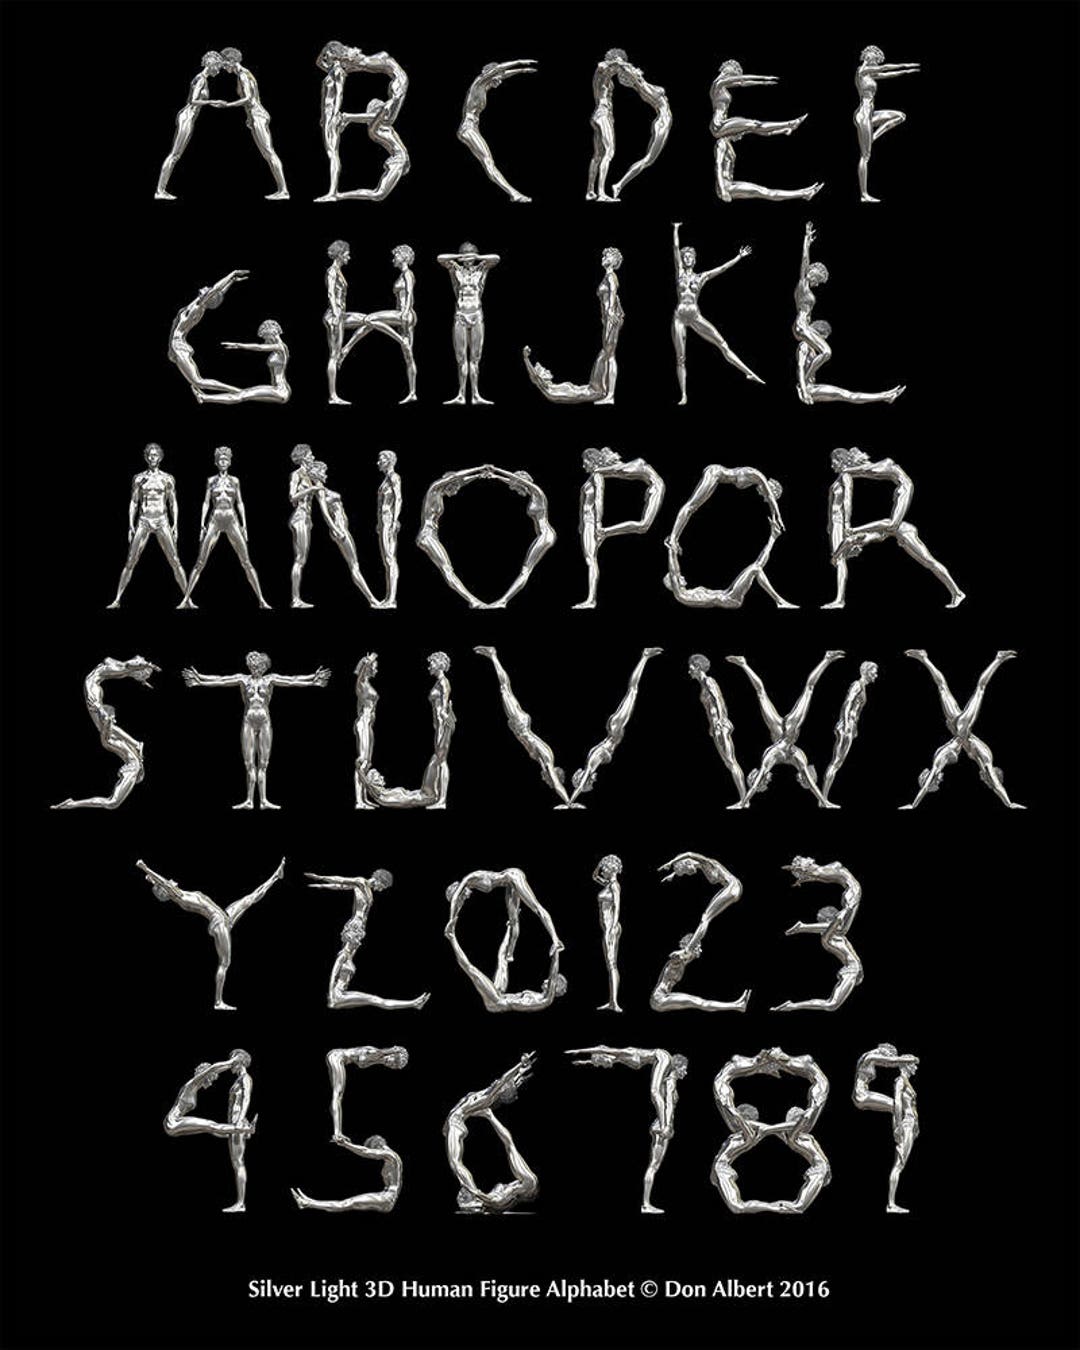 ABCDEF
GHIJKL
MNOPQR
STUVWX
YZ0123
456789
Silver Light 3D Human Figure Alphabet © Don Albert 2016